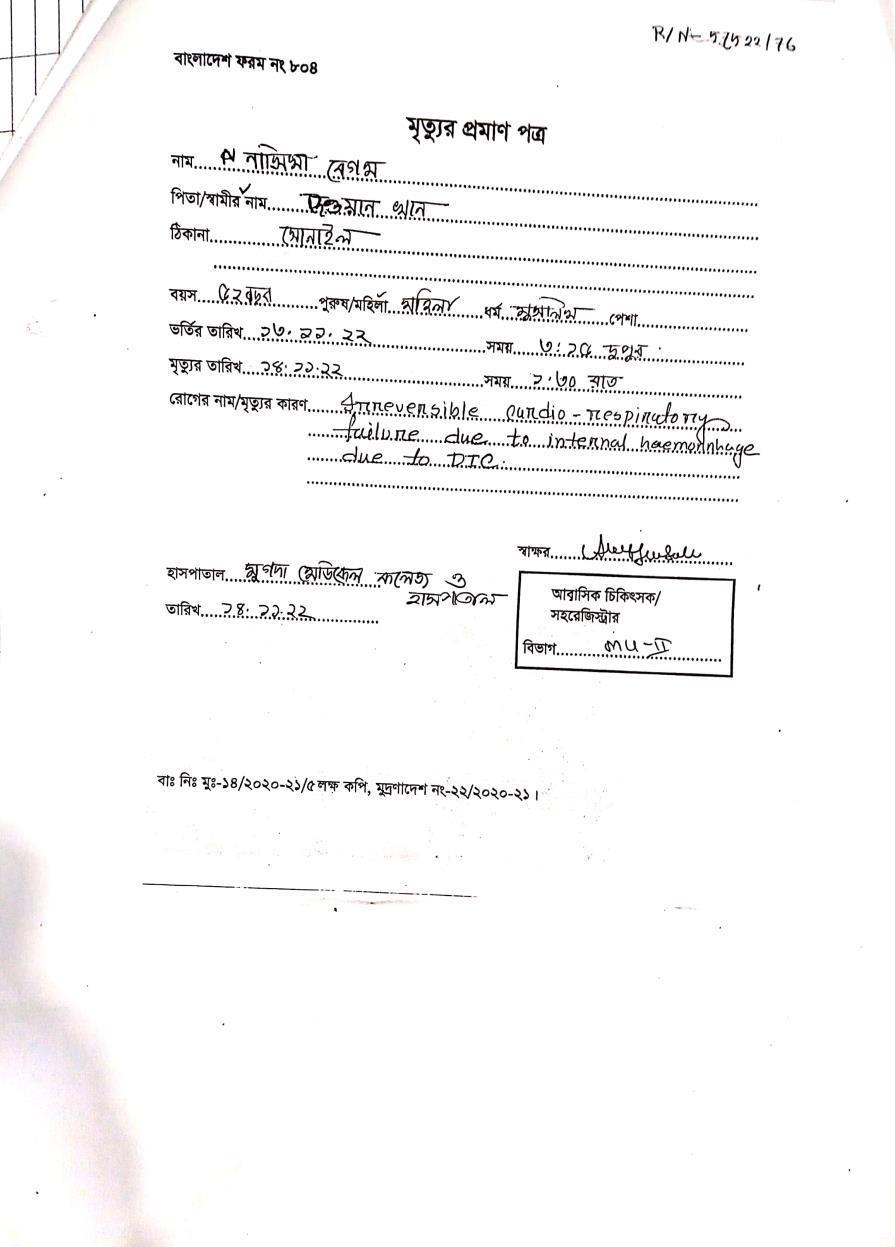 R/N- 57522/76
বাংলাদেশ ফরম নং ৮০৪
মৃত্যুর প্রমাণ পত্র
নাম.... নাসিমা বেগম
পিতা/স্বামীর নাম.... খান
ঠিকানা....
বয়স....৫২ বছর....পুরুষ/মহিলা...মহিলা....ধর্ম...মুসলিম....পেশা....
ভর্তির তারিখ....২৩.১১.২২....সময়....৩:২৫ দুপুর
মৃত্যুর তারিখ....২৪.১১.২২....সময়....২:৩০ রাত
রোগের নাম/মৃত্যুর কারণ....Irreversible cardio-respiratory
failure due to internal haemorrhage
due to DIC.
স্বাক্ষর....
হাসপাতাল....মুগদা মেডিকেল কলেজ ও
হাসপাতাল
তারিখ....২৪.১১.২২
আবাসিক চিকিৎসক/
সহরেজিস্ট্রার
বিভাগ....MU-II
বাঃ নিঃ মুঃ-১৪/২০২০-২১/৫ লক্ষ কপি, মুদ্রণাদেশ নং-২২/২০২০-২১।